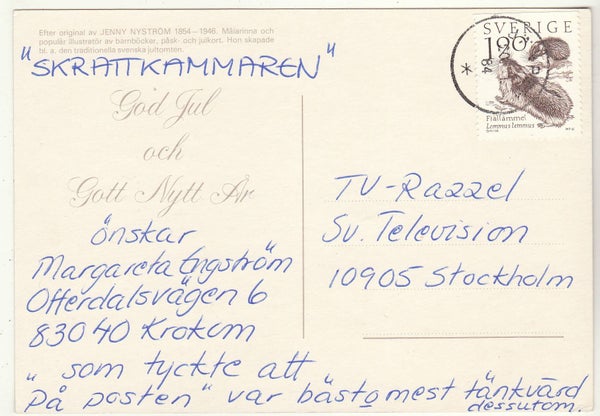 Efter original av JENNY NYSTRÖM 1854–1946. Målarinna och
populär illustratör av barnböcker, påsk- och julkort. Hon skapade
bl. a. den traditionella svenska jultomten.
"SKRATTKAMMAREN"
God Jul
och
Gott Nytt År
önskar
Margareta Engström
Offerdalsvägen 6
83040 Krokom
" som tyckte att
På posten" var bäst o mest tänkvärd
dessutom.
SVERIGE
190
84
Fjällämmel
Lemmus lemmus
TV-Razzel
Sv. Television
10905 Stockholm